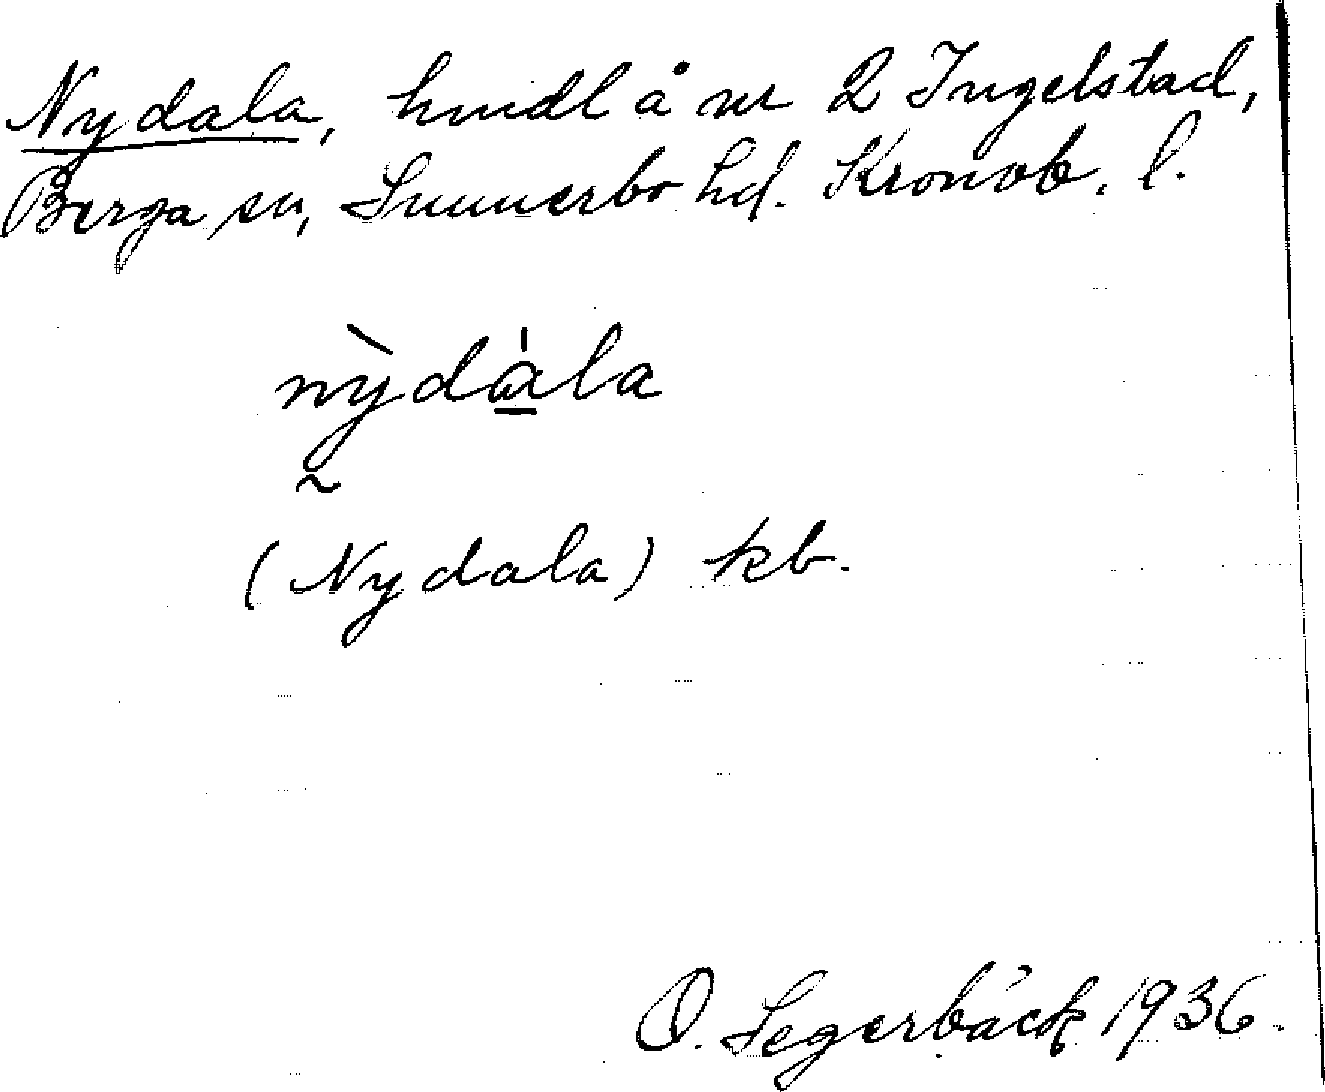 Nydala, hmdl å nr 2 Ingelstad,
Berga sn, Sunnerbo hd. Kronob. l.
nỳdàla
(Nydala) kb.
O. Segerbäck 1936.